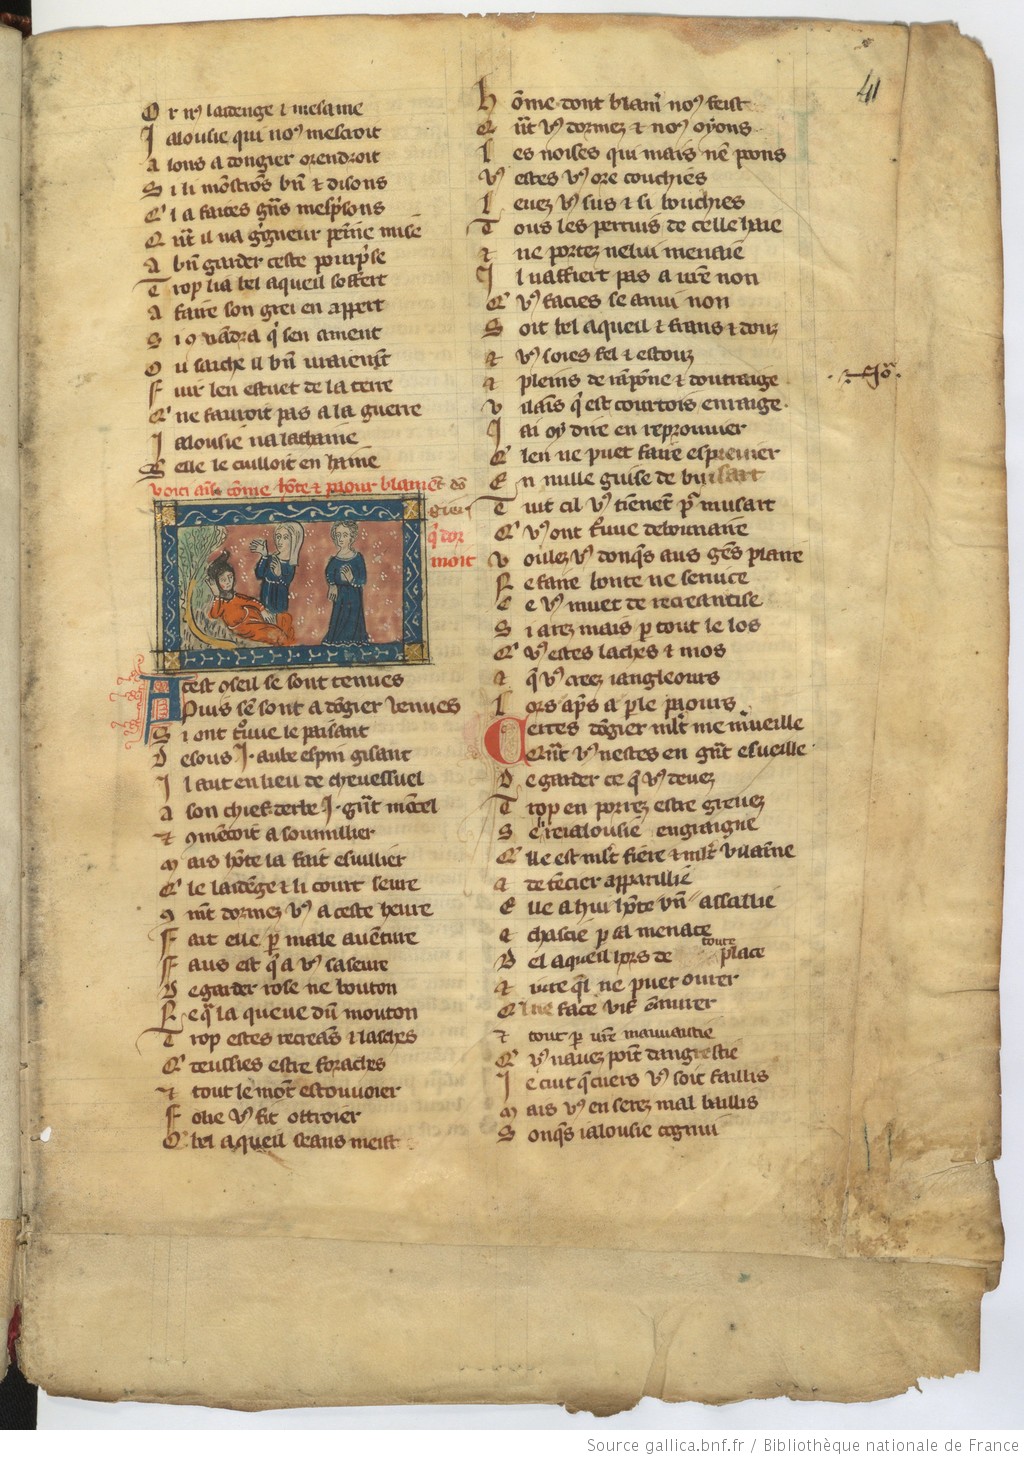 Or nꝰ laidenge ⁊ mesame
Jalousie qui noꝰ mescroit
Alons a dongier orendroit
Si li mōstrōs bn̄ ⁊ disons
Qͥl a faites gn̄s mesp̄sons
Qn̄t il na gͥgneur peine mise
A bn̄ garder ceste pourpͥse
Trop li a bel aqueil soffert
A faire son grei en appert
Si ꝯvādra qͥ sen ament
Ou saiche il bn̄ uraiemn̄t
Fuir len estuet de la terre
Qͥ ne fauroit pas a la guerre
Jalousie na lachaine
Selle le cuilloit en haine
Voici cōme hōte ⁊ paour blamēt dō
gier
qͥ dor
moit
A cest oseil se sont tenues
Puis sē sont a dōgier uenues
Si ont tͦuue le paisant
Desous .J. aube espin gisant
Jl aut en lieu de cheuessuel
A son chief derbe .J. gn̄t mōcel
⁊ ꝯmēcoit a soumillier
Mais hōte la fait esuillier
Qͥ le laidēge ⁊ li court seure
ꝯmēt dormez vꝰ a ceste heure
Fait elle p̱ male auēture
Faus est qͥ a vꝰ saseure
De garder rose ne bouton
Ne qͥ la queue dūn mouton
Trop estes recreās ⁊ lasches
Qͥ deussies estre foraches
⁊ tout le mōt estouuoier
Folie vꝰ fit ottroier
Qͥ bel aqueil seans meist
41
Hōme dont blamͬ noꝰ feist
Qn̄t vꝰ dormez ⁊ noꝰ oyons
Les noises qui mais nē poons
Vꝰ estes vꝰ ore couchiés
Leuez vꝰ sus ⁊ si bouchies
Tous les pertuis de celle haie
⁊ ne portez nelui menaie
Jl naffiert pas a ur̄e non
Qͥ vꝰ facies se anui non
Soit bel aqueil ⁊ frans ⁊ douz
⁊ vꝰ soies fel ⁊ estouz
⁊ pleins de rāpone ⁊ doutraige
Vilains qͥ est courtois enraige
Jai oy dire en reprouuier
Qͥ len ne puet faire espreuier
En nulle guise de buisart
Tuit cil vꝰ tienent pͬ musart
Qͥ vꝰ ont tͦuue debonaire
Voulez vꝰ donqͥs aus gēs plaire
Ne faire bonte ne seruice
Ce vꝰ muet de recreantise
Si arez mais p̱ tout le los
Qͥ vꝰ estes laches ⁊ mos
⁊ qͥ vꝰ creez iangleours
Lors ap̄s a ple paours
Certes dōgier ml̄t me mͥueille
Qn̄t vꝰ nestes en gn̄t esueille
De garder ce qͥ vꝰ deuez
Trop en porrez estre greuez
Se ire ialousie engraigne
Elle est ml̄t fiere ⁊ ml̄t
⁊ de tēcier apparillie
Elle a hui hōte assallie
⁊ chascie p̱ sa menace
Bel aqueil hors de toute place
⁊ iure qͥl ne puet ourer
Qͥl ne face vif ēmurer
⁊ tout p̱ ur̄e mauuaistie
Qͥ vꝰ nauez point dangrestie
Je cuit qͥ cuers vꝰ soit faillis
Mais vꝰ en serez mal baillis
Sonqͥs ialousie cognui
Source gallica.bnf.fr / Bibliothèque nationale de France